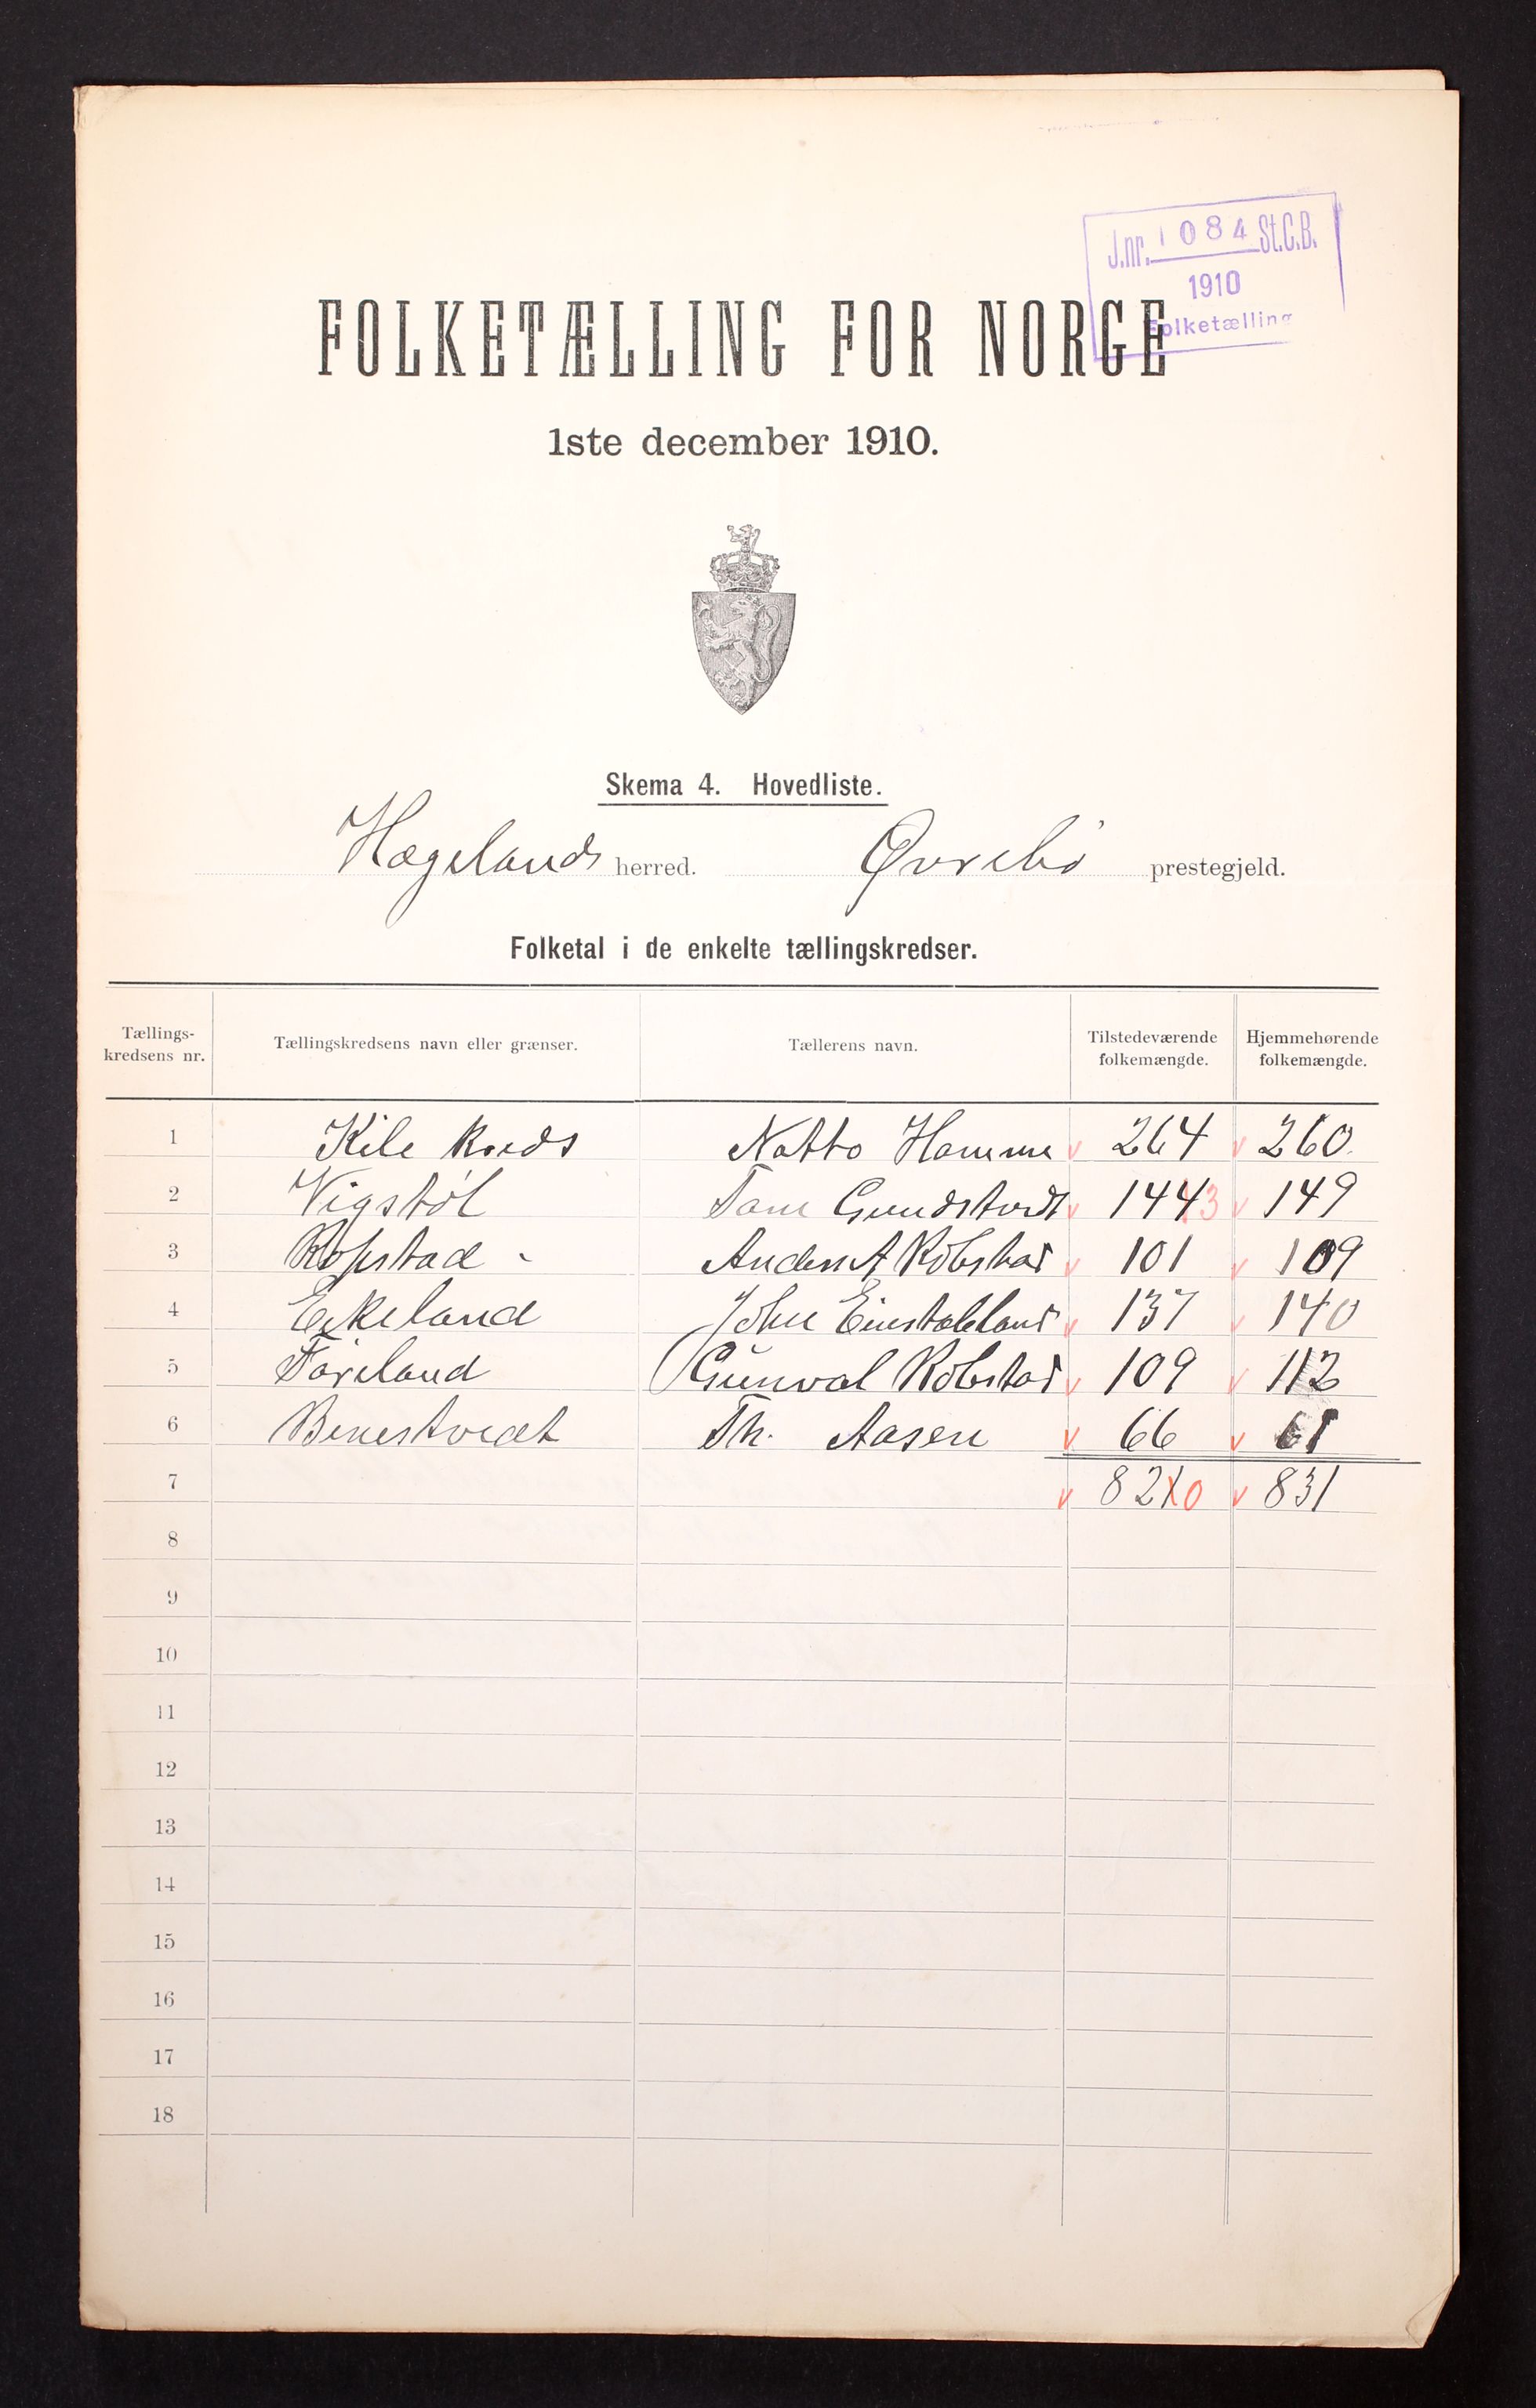 J.nr. 1084 St.C.B.
1910
Folketælling
FOLKETÆLLING FOR NORGE
1ste december 1910.
Skema 4. Hovedliste.
Hægelands herred. Øvrebö prestegjeld.
Folketal i de enkelte tællingskredser.
Tællings-kredsens nr. Tællingskredsens navn eller grænser. Tællerens navn. Tilstedeværende folkemængde. Hjemmehørende folkemængde.
1 Kile kreds Natto Homme v 264 v 260.
2 Vigstöl Tom Gundstvedt v 144 3 v 149
3 Robstad - Anders A Robstad v 101 v 109
4 Eikeland John Einstabland v 137 v 140
5 Föreland Gunval Robstad v 109 v 112
6 Benestvedt Th. Aasen v 66 v 61
7 v 821 0 v 831
8
9
10
11
12
13
14
15
16
17
18